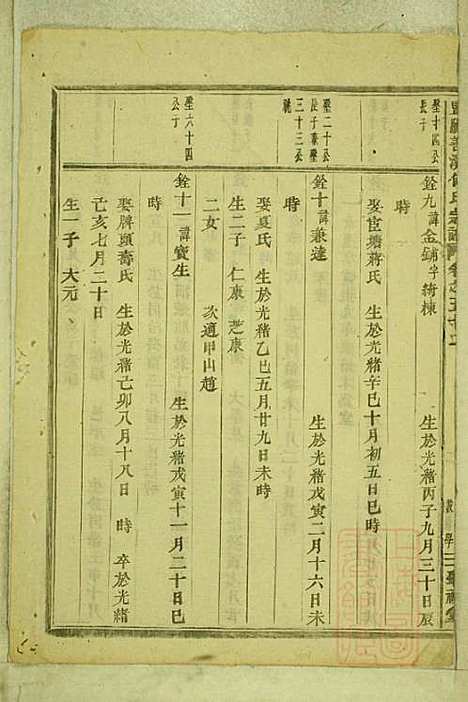 卷之五十二
聖十四公
長子
銓九諱金鋪字綺棟
生於光緒丙子九月三十日辰
時
娶宦塘蔣氏 生於光緒辛巳十月初五日巳時
聖二十公
長子兼聖
三十三公
祧
銓十諱兼達
生於光緒戊寅二月十六日未
時
娶夏氏 生於光緒乙巳五月廿九日未時
生二子 仁康 芝康
二女 次適甲山趙
聖六十四
公子
銓十一諱寶生
生於光緒戊寅十一月二十日巳
時
娶牌頭壽氏 生於光緒己卯八月十八日 時 卒於光緒
己亥七月二十日
生一子 大元